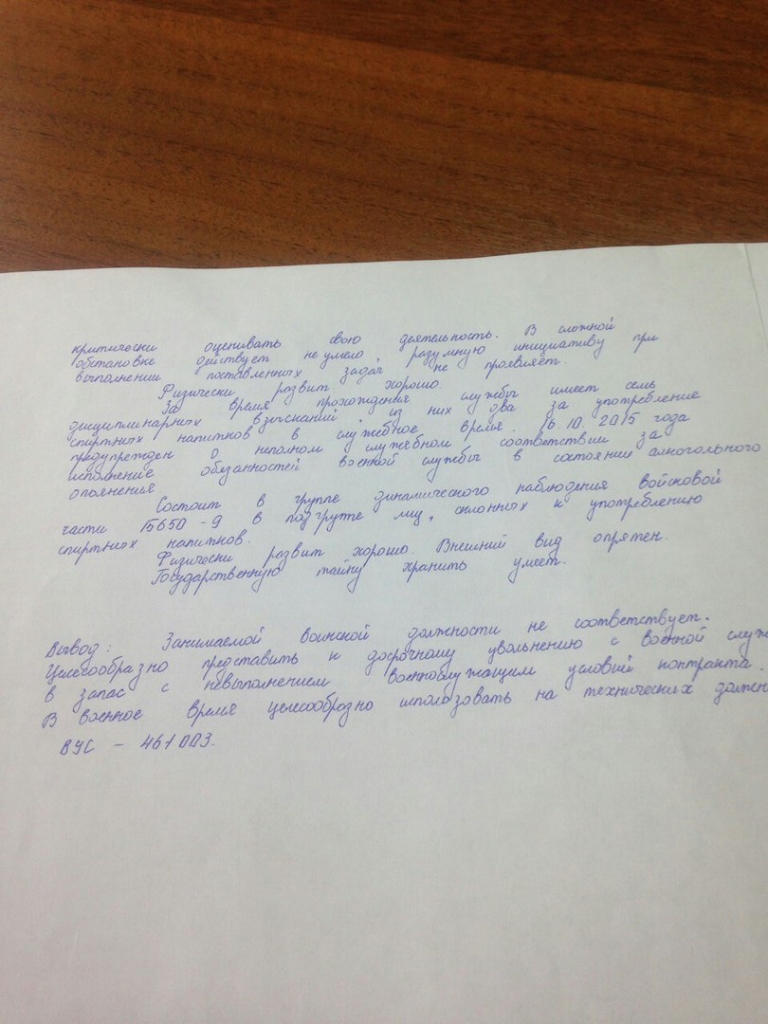 критически оценивать свою деятельность. В сложной
обстановке действует неумело разумную инициативу при
выполнении поставленных задач не проявляет.
Физически развит хорошо.
За время прохождения службы имеет семь
дисциплинарных взысканий из них два за употребление
спиртных напитков в служебное время. 16.10.2015 года
предупрежден о неполном служебном соответствии за
исполнение обязанностей военной службы в состоянии алкогольного
опоянения
Состоит в группе динамического наблюдения войсковой
части 15650-9 в подгруппе лиц, склонных к употреблению
спиртных напитков.
Физически развит хорошо. Внешний вид опрятен.
Государственную тайну хранить умеет.
Вывод: Занимаемой воинской должности не соответствует.
Целесообразно представить к досрочному увольнению с военной служ
в запас с невыполнением военнослужащим условий контракта.
В военное время целесообразно использовать на технических должн
ВУС - 461003.